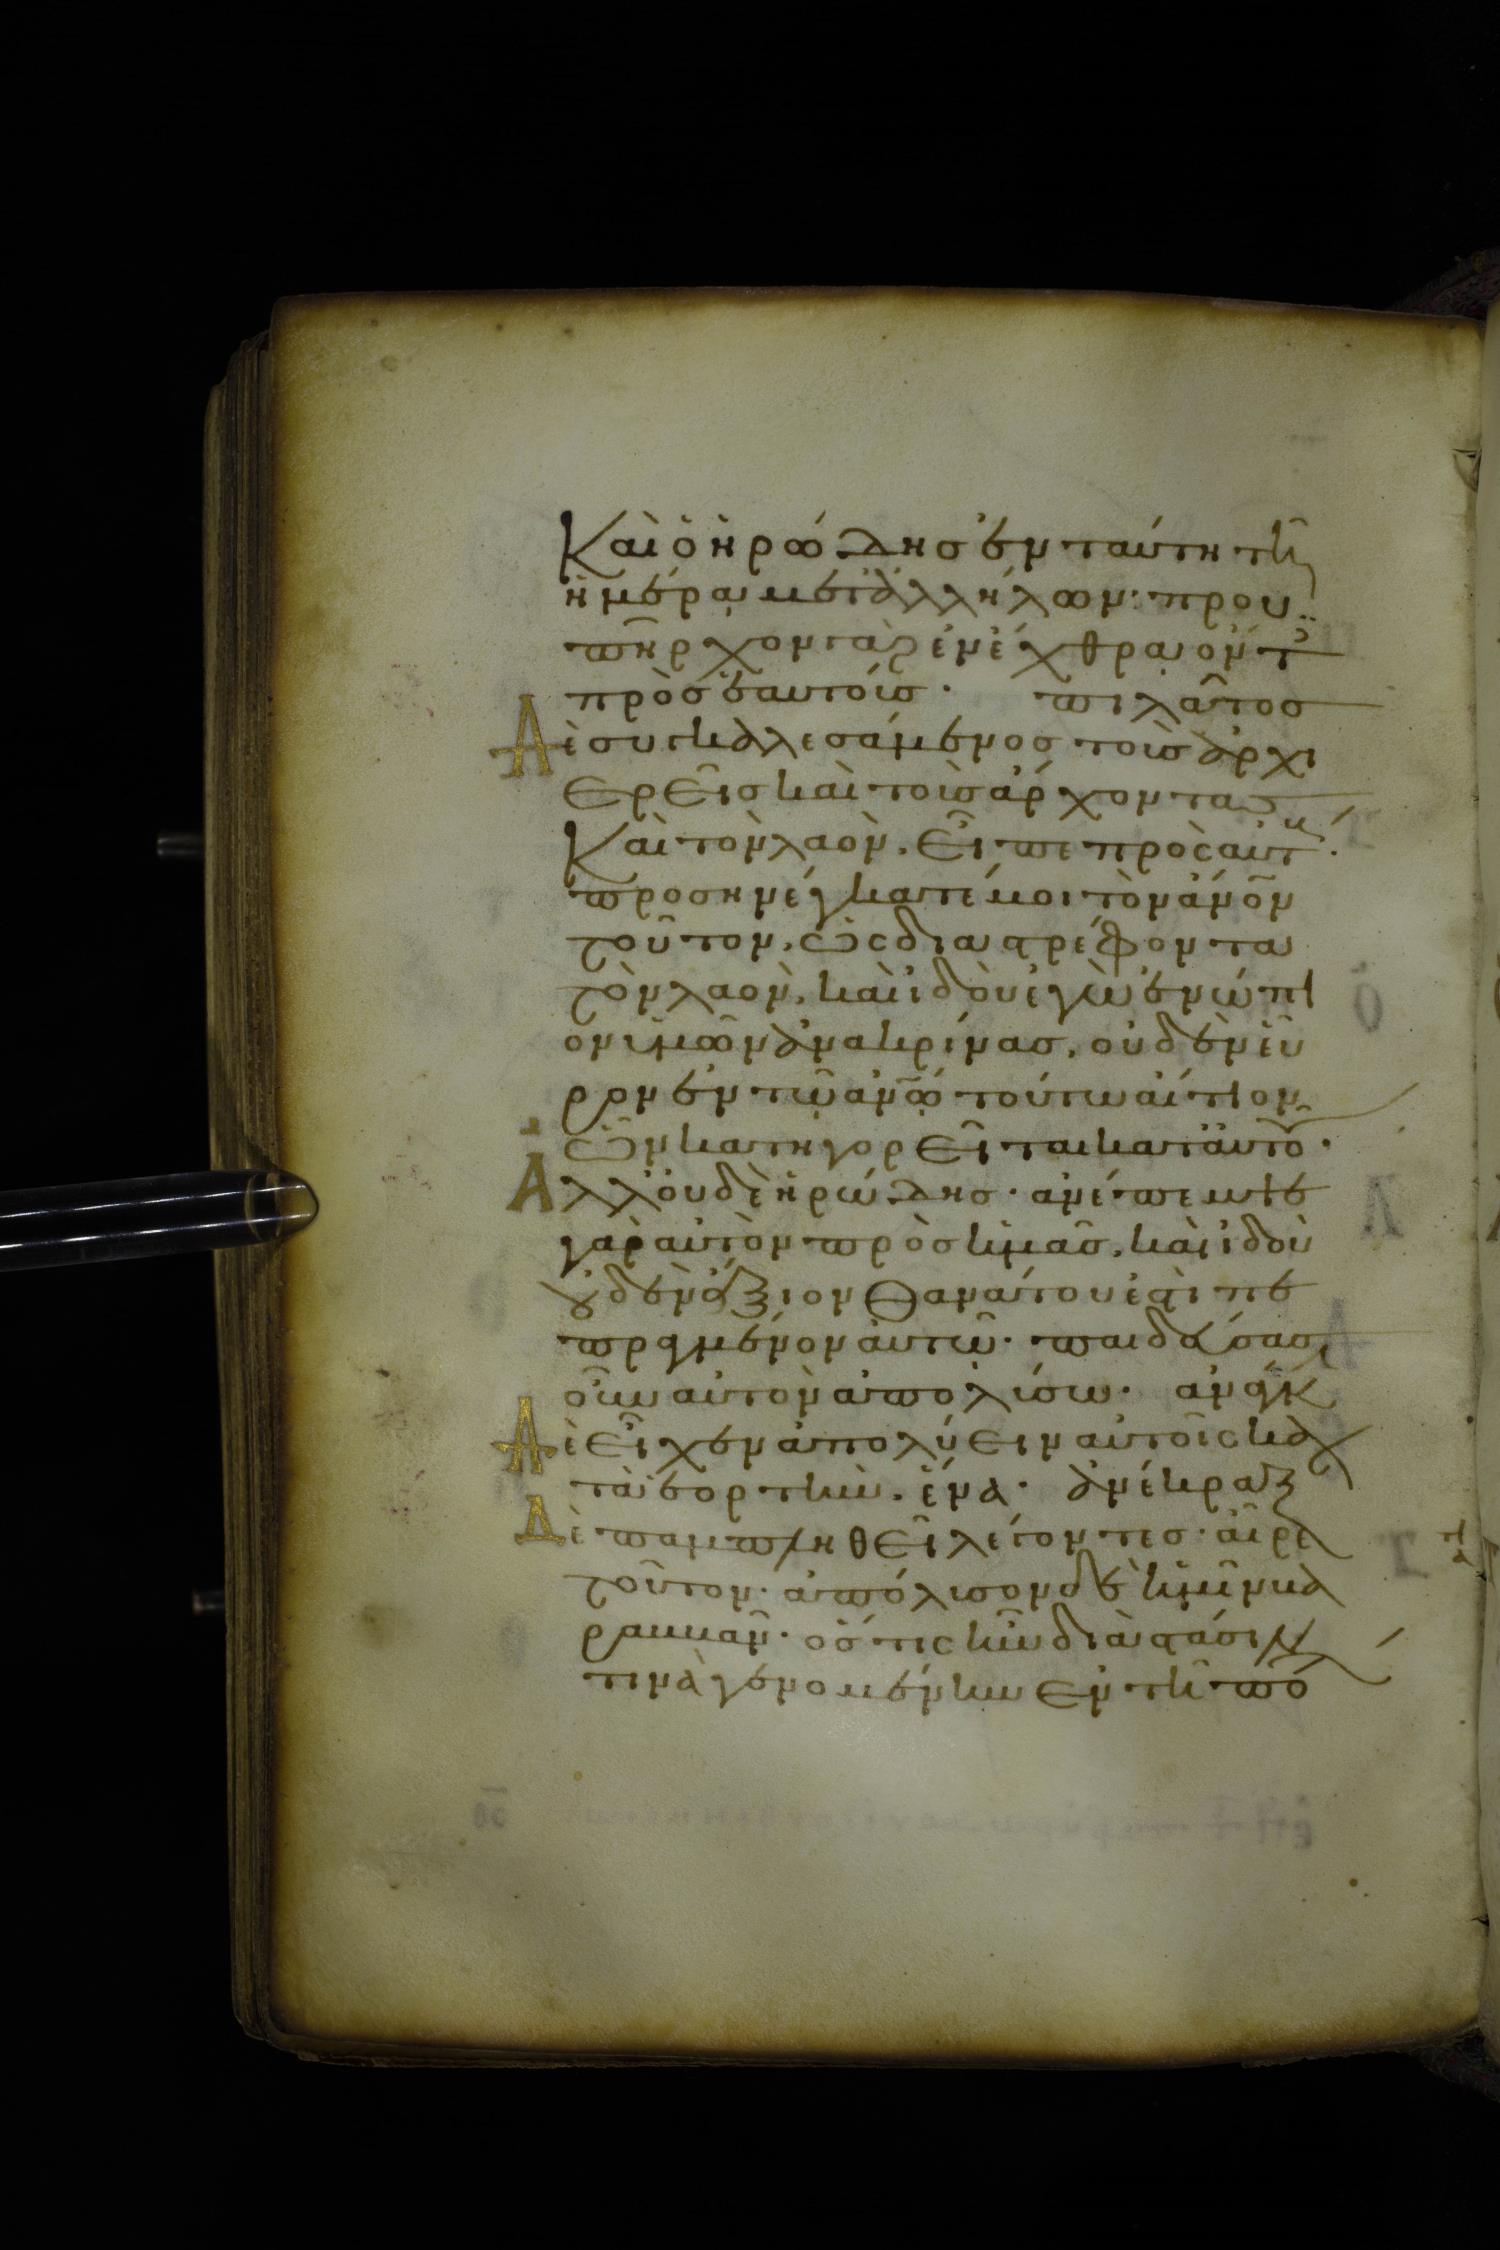 Καὶ ὁ ἡρώδης ἐν ταύτη τῆ
ἡμέρα μετ ἀλλήλων· προϋ
πῆρχον γὰρ ἐν ἔχθρα ὄντ
πρὸς ἑαυτούς· πιλᾶτος
Δὲ συγκαλεσάμενος τοὺς ἀρχι
ερεῖς καὶ τοὺς ἄρχοντας
Καὶ τὸν λαὸν, εἶπε πρὸς αὐτ·
προσηνέγκατέ μοι τὸν ἀνον
τοῦτον, ὡς διαστρέφοντα
τὸν λαὸν, καὶ ἰδοὺ ἐγὼ ἐνώπι
ον ὑμῶν ἀνακρίνας, οὐδὲν εὗ
ρον ἐν τῶ ἀνω τούτω αἴτιον
ὧν κατηγορεῖται κατ αὐτο·
Ἀλλ οὐδὲ ἡρώδης· ἀνέπεμψε
γὰρ αὐτὸν πρὸς ἡμᾶς, καὶ ἰδοὺ
οὐδὲν ἄξιον θανάτου ἐστὶ πε
πραγμένον αὐτῶ· παιδεύσας
οὖν αὐτὸν ἀπολύσω· ἀνάγκ
Δὲ εἶχεν ἀπολύειν αὐτοῖς κα
τὰ ἑορτὴν, ἕνα· ἀνέκραξ
Δὲ παμπληθεὶ λέγοντες· αἶρε
τοῦτον· ἀπόλυσον δὲ ἡμῖν βα
ραββᾶν· ὅστις ἦν διὰ στάσιν
τινὰ γενομένην ἐν τῆ πό